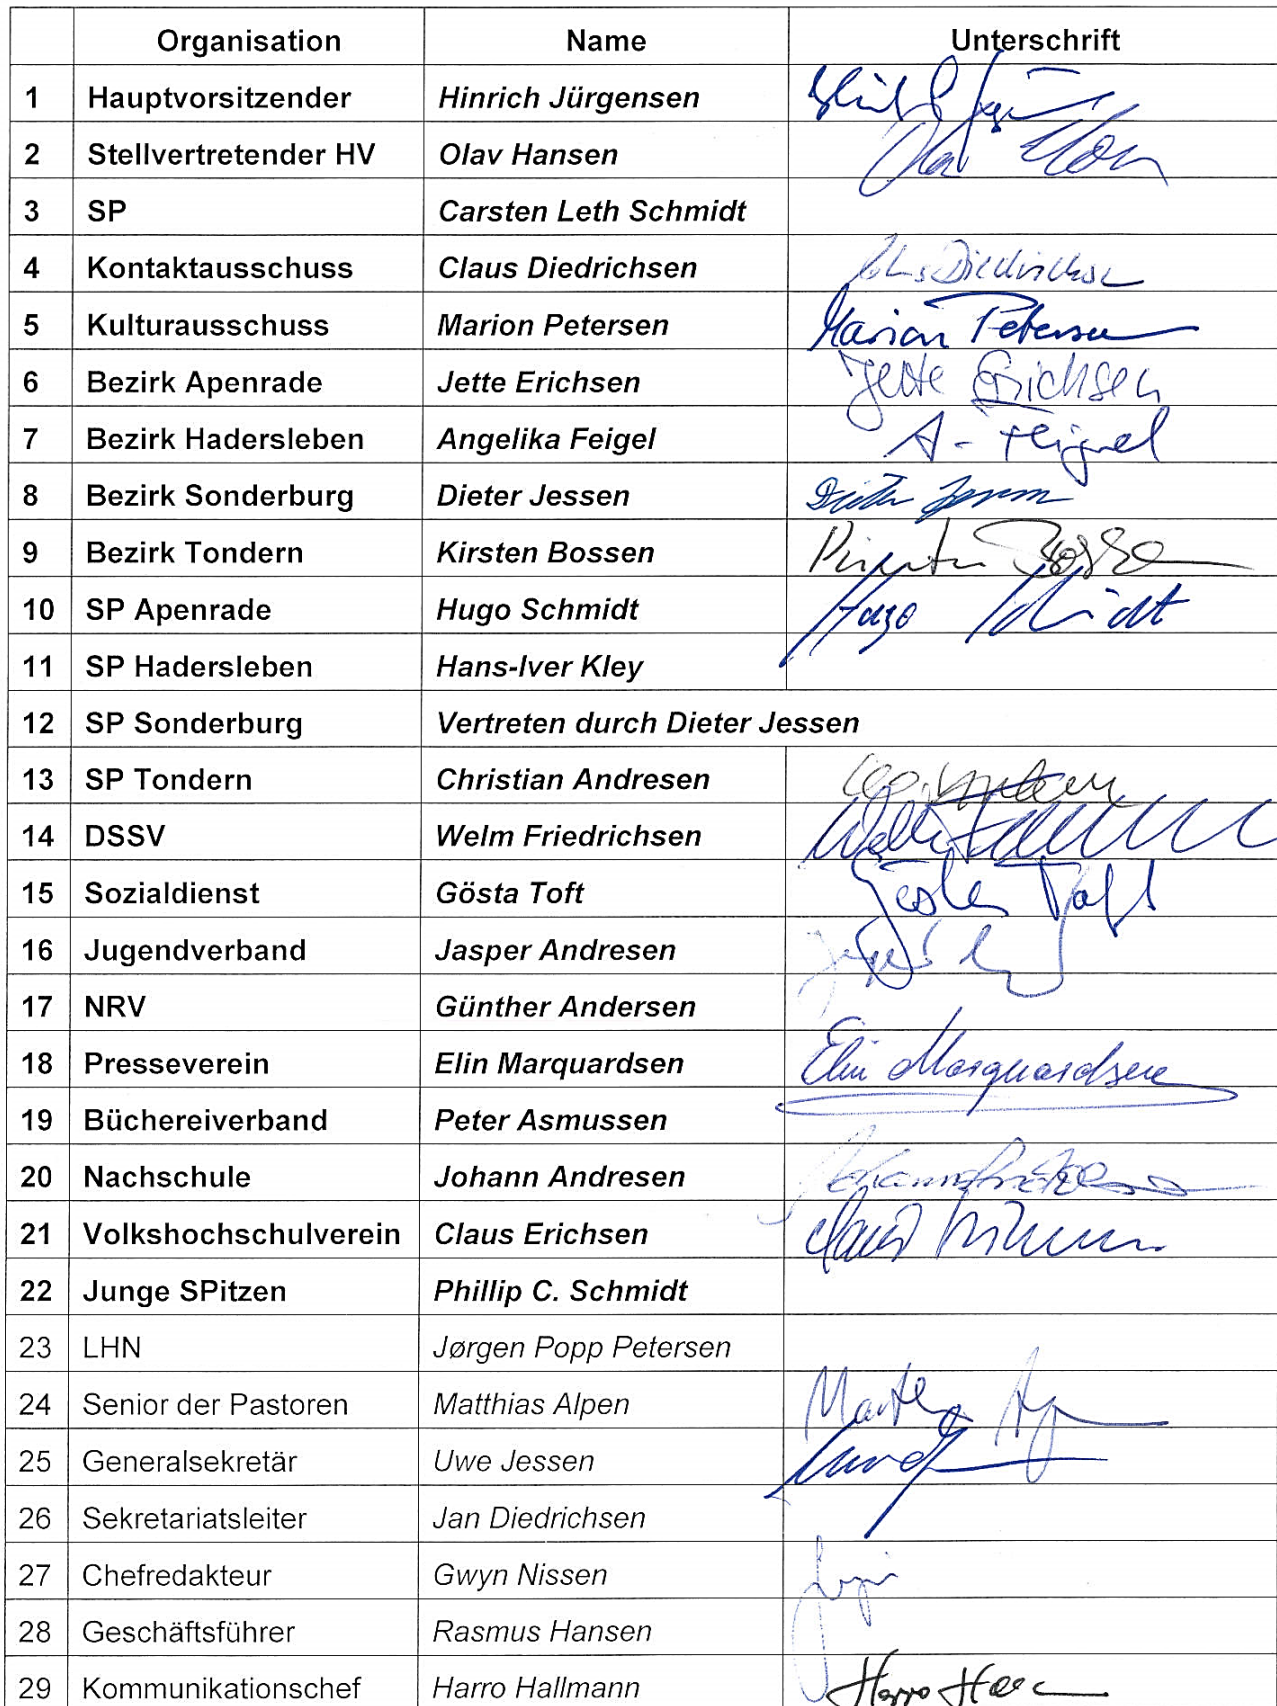 Organisation Name Unterschrift
1 Hauptvorsitzender Hinrich Jürgensen
2 Stellvertretender HV Olav Hansen
3 SP Carsten Leth Schmidt
4 Kontaktausschuss Claus Diedrichsen
5 Kulturausschuss Marion Petersen Marion Petersen
6 Bezirk Apenrade Jette Erichsen Jette Erichsen
7 Bezirk Hadersleben Angelika Feigel A. Feigel
8 Bezirk Sonderburg Dieter Jessen Dieter Jessen
9 Bezirk Tondern Kirsten Bossen Kirsten Bossen
10 SP Apenrade Hugo Schmidt Hugo Schmidt
11 SP Hadersleben Hans-Iver Kley
12 SP Sonderburg Vertreten durch Dieter Jessen
13 SP Tondern Christian Andresen
14 DSSV Welm Friedrichsen
15 Sozialdienst Gösta Toft Gösta Toft
16 Jugendverband Jasper Andresen
17 NRV Günther Andersen
18 Presseverein Elin Marquardsen Elin Marquardsen
19 Büchereiverband Peter Asmussen
20 Nachschule Johann Andresen
21 Volkshochschulverein Claus Erichsen
22 Junge SPitzen Phillip C. Schmidt
23 LHN Jørgen Popp Petersen
24 Senior der Pastoren Matthias Alpen
25 Generalsekretär Uwe Jessen
26 Sekretariatsleiter Jan Diedrichsen
27 Chefredakteur Gwyn Nissen
28 Geschäftsführer Rasmus Hansen
29 Kommunikationschef Harro Hallmann Harro